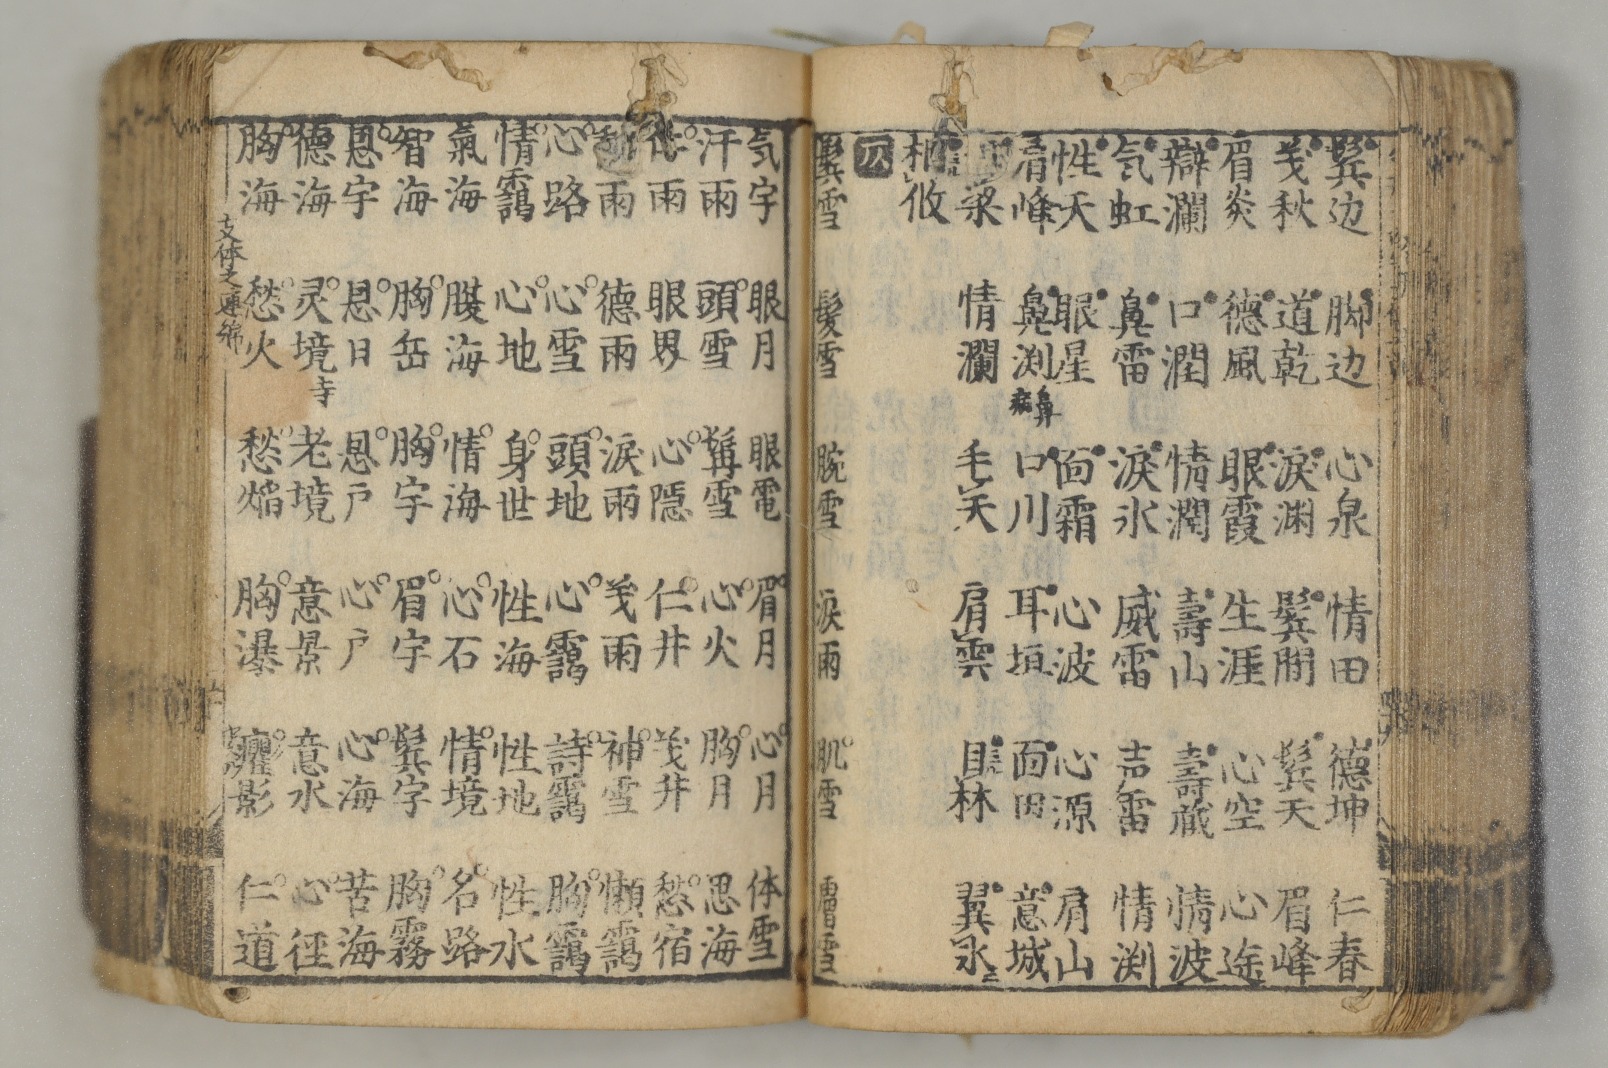 鬂边 脚边 心泉 情田 德坤 仁春
羙秋 道乾 淚渊 鬂間 鬂天 眉峰
眉炎 德風 眼霞 生涯 心空 心途
辯瀾 口潤 情潤 壽山 壽藏 情波
気虹 鼻雷 淚氷 威雷 声雷 情渕
性天 眼星 面霜 心波 心源 肩山
肩峰 鼻渕 口川 耳垣 面田 意城
梁 情瀾 毛天 肩雲 目林 翼氷
相攸
鬂雪 髮雪 腕雪 淚雨 肌雪
気宇 眼月 眼電 眉月 心月 体雪
汗雨 頭雪 髯雪 心火 胸月 思海
雨 眼界 心隠 仁井 羙井 愁宿
雨 德雨 淚雨 羙雨 神雪 懶靄
心路 心雪 頭地 心靄 詩靄 胸靄
情靄 心地 身世 性海 性地 性水
氣海 腹海 情海 心石 情境 名路
智海 胸岳 胸宇 眉宇 鬂字 胸霧
恩宇 恩日 恩戸 心戸 心海 苦海
德海 灵境 老境 意景 意水 心径
寺
胸海 愁火 愁焔 胸瀑 癯影 仁道
支体之連綿